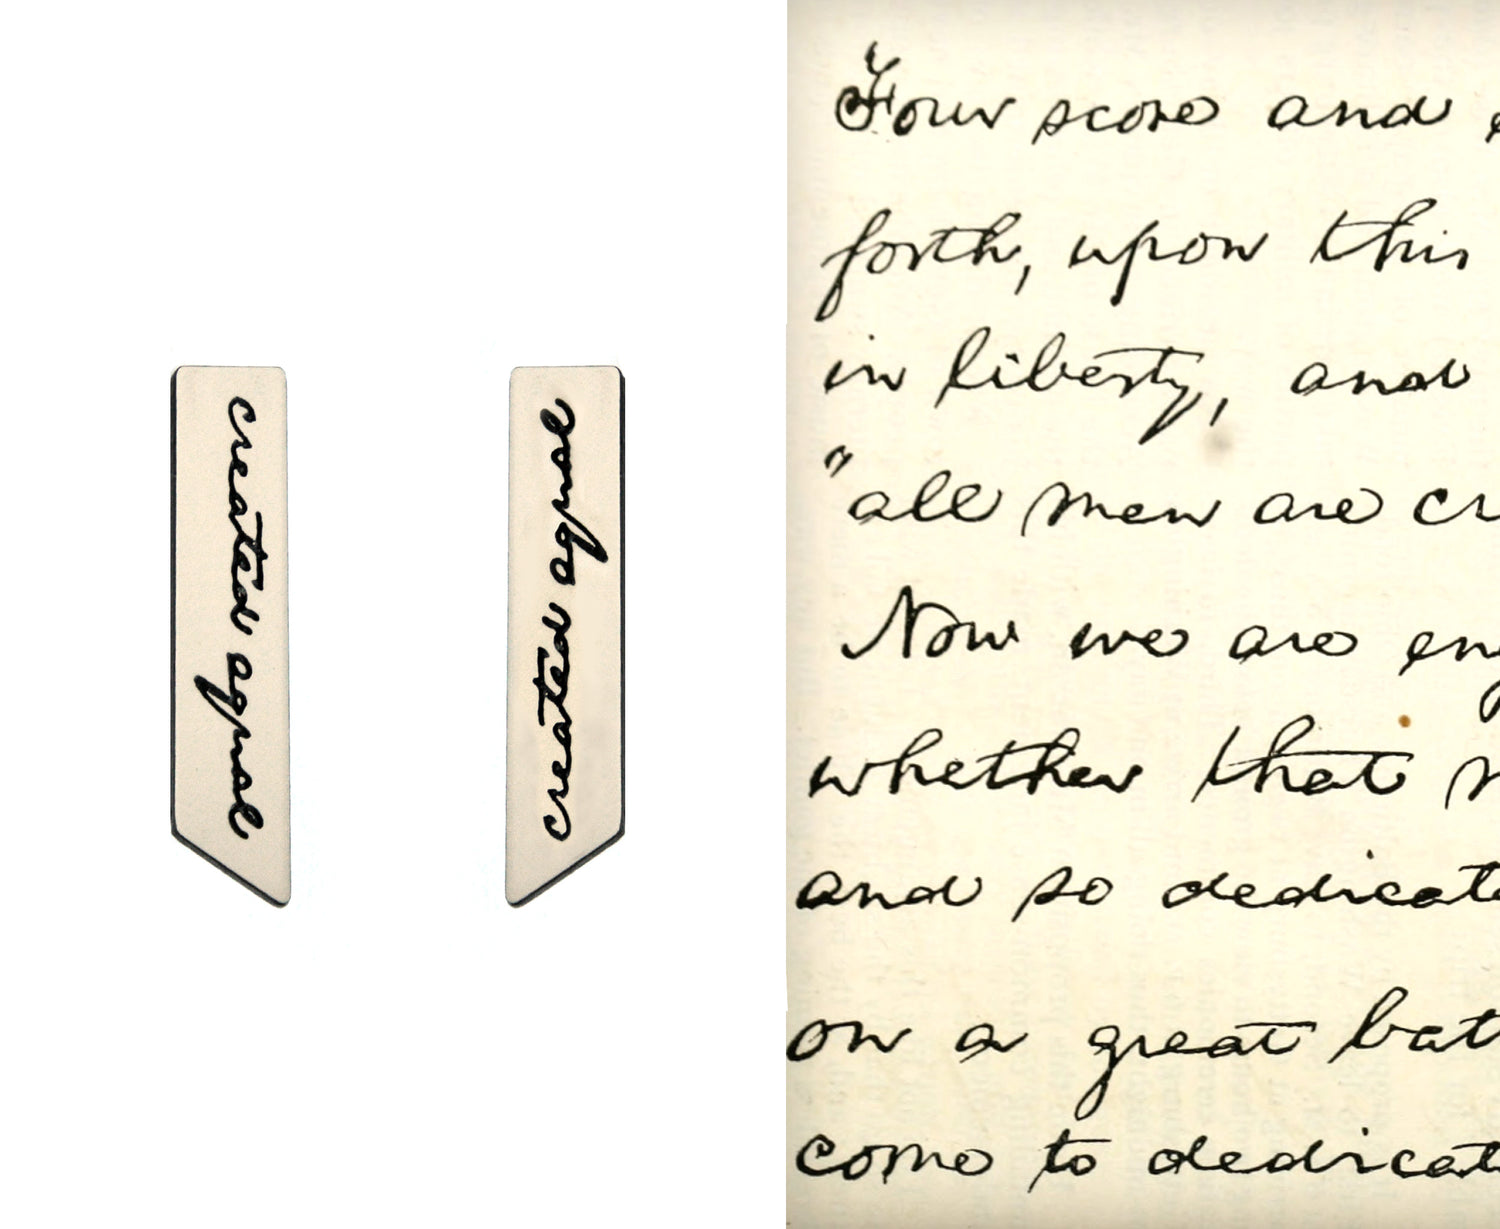 created equal
created equal
Four score and
forth, upon this
in liberty, and
"all men are cr
Now we are eng
whether that n
and so dedicate
on a great bat
come to dedicat